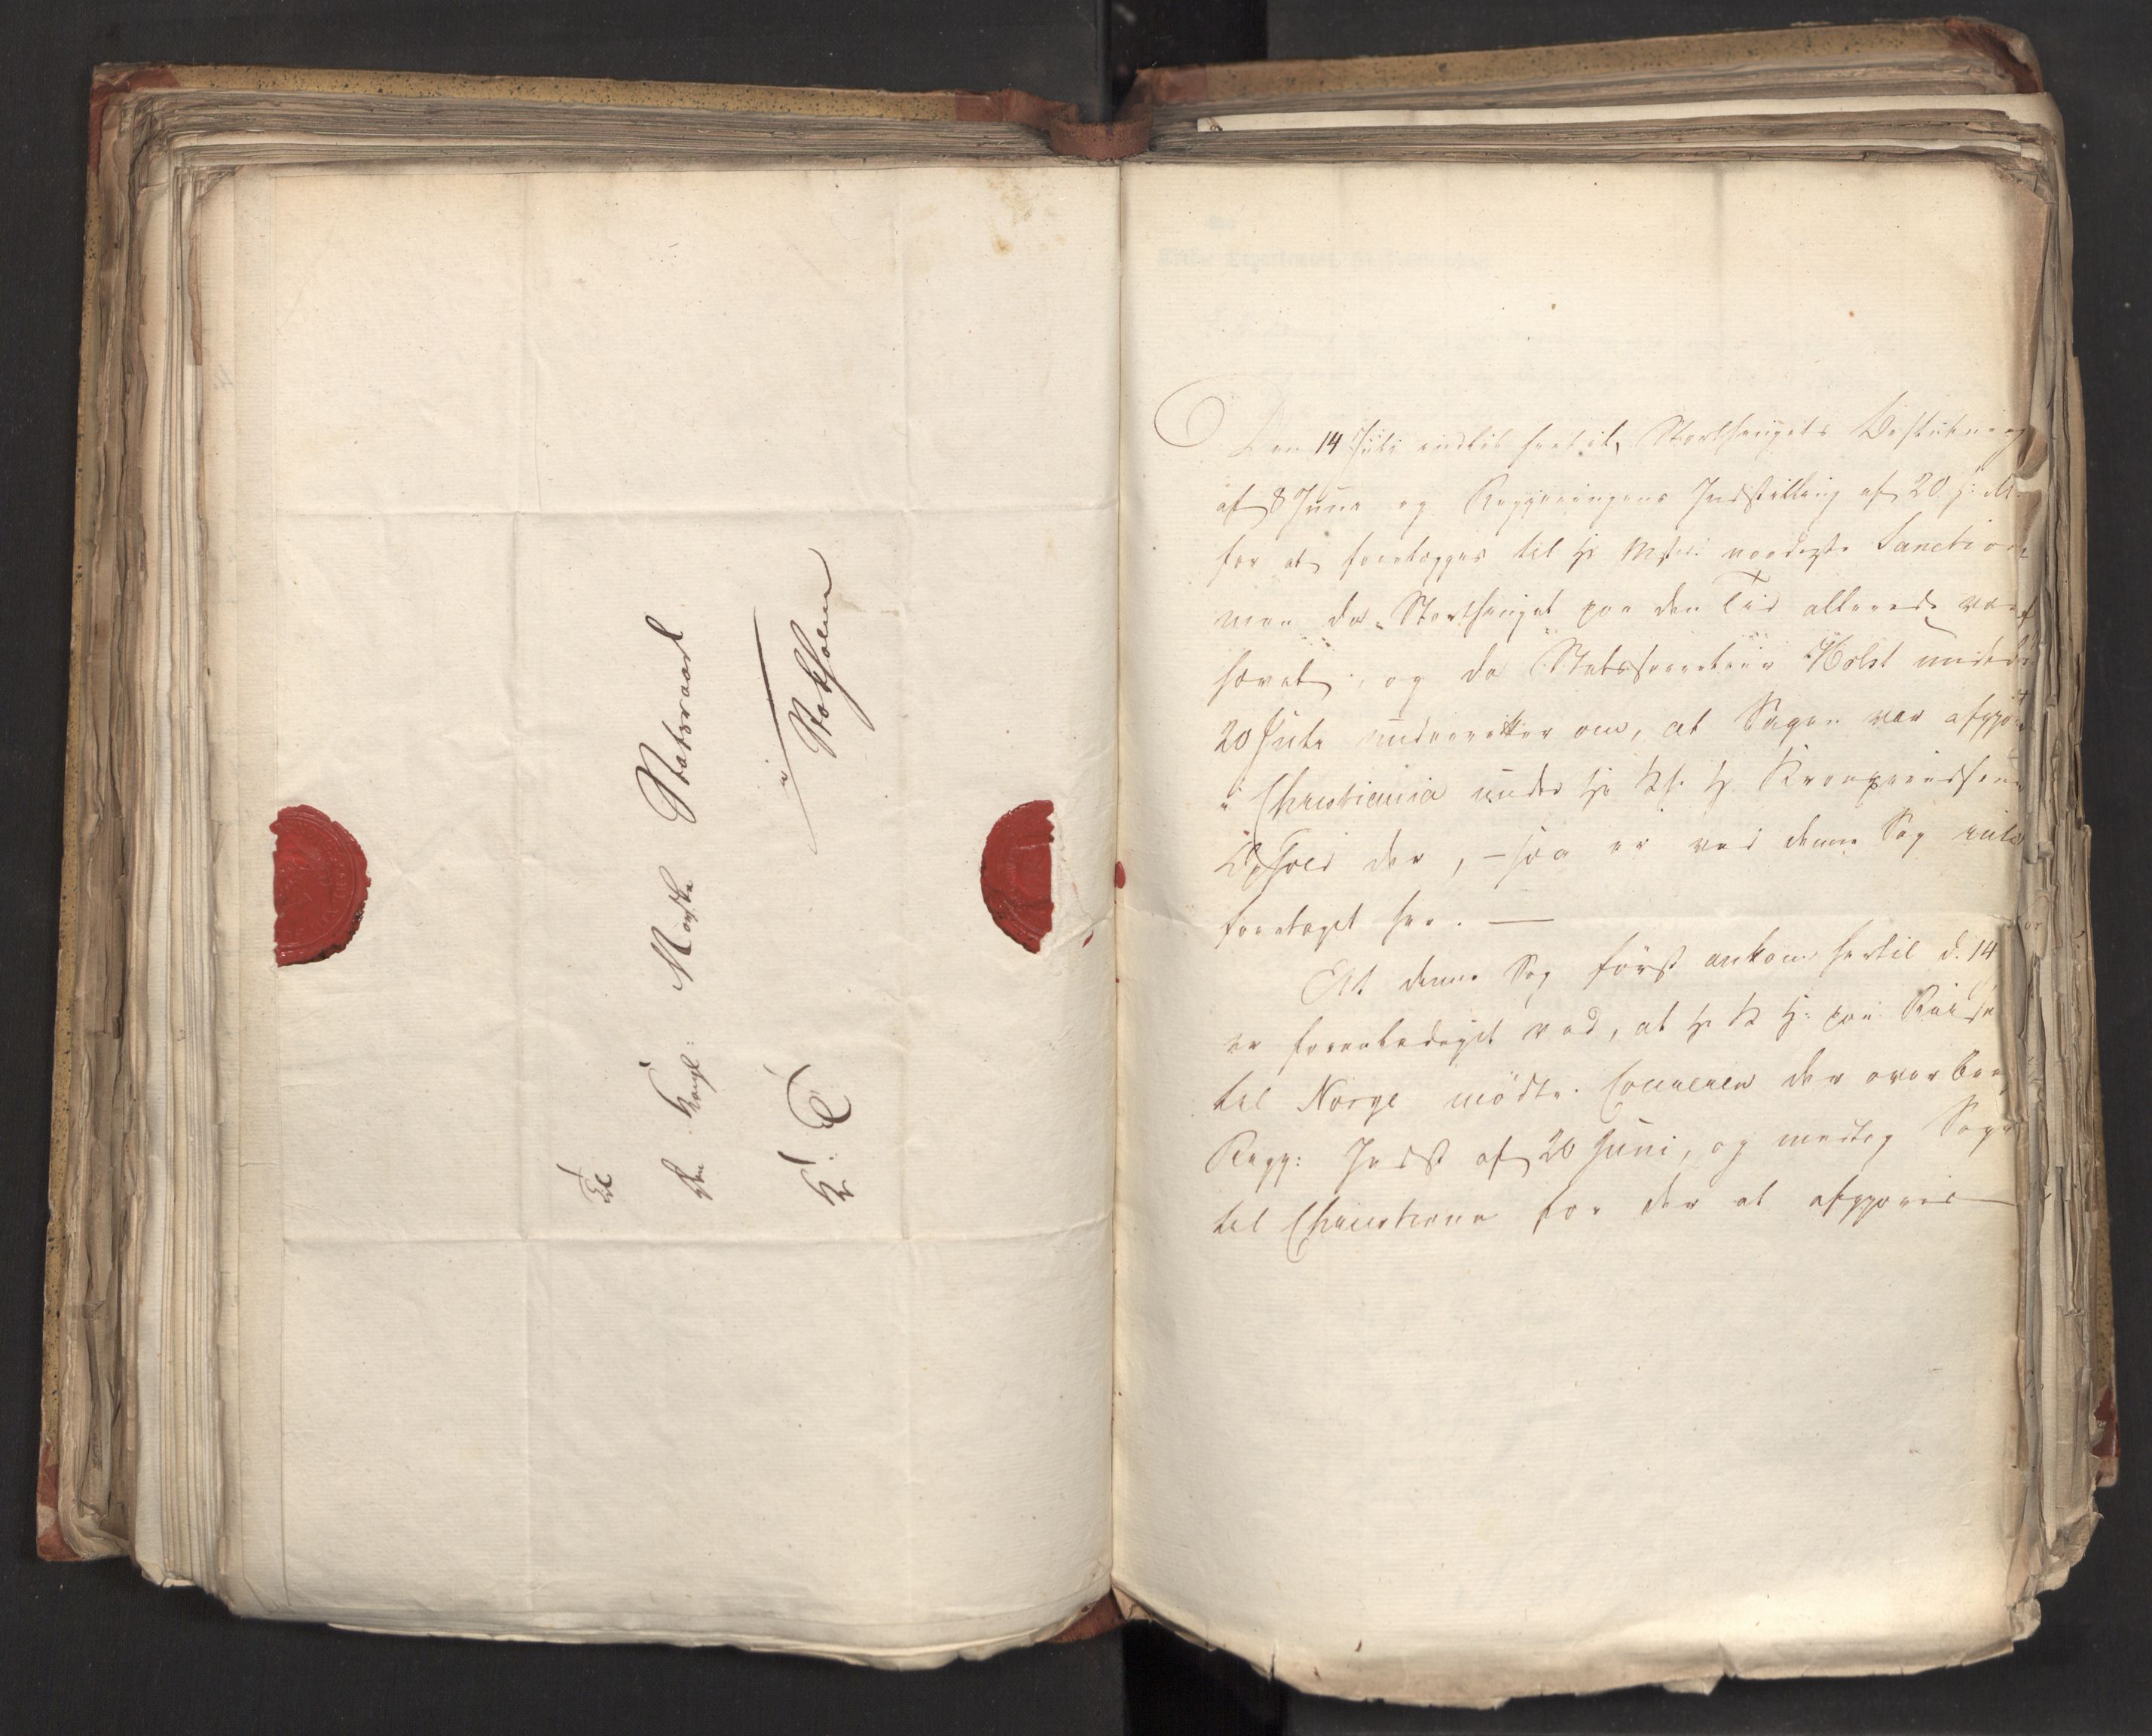 Til
Den Kongl: Norske Statsraad
i
Stokholm
K. T.
Den 14 Juli indløb hertil, Storthingets Beslutning
af 8 Juni og Regjeringens Indstilling af 20 s: M:
for at forelægges til Hs Msts: naadigste Sanction
men da Storthinget paa den Tid allerede var
hævet, og da Statssecretair Holst under
20 Juli underretter om, at Sagen var afgjort
i Christiania under Hs Kl. H. Kronprindsens
Ophold der, – saa er ved denne Sag intet
foretaget her. —
At denne Sag først ankom hertil d. 14
er foranlediget ved, at Hs K H: paa Reisen
til Norge mødte Coureren der overbragte
Regj: Indst af 20 Juni, og medtog Sagen
til Christiania for der at afgjøres —